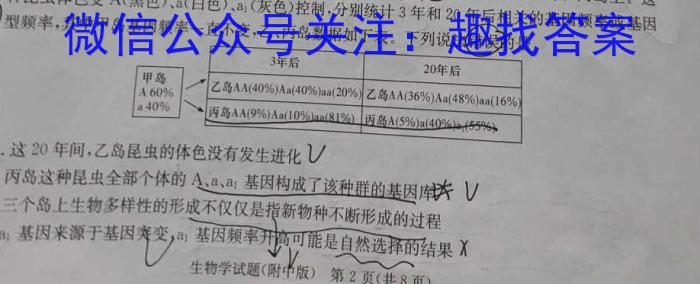 体色变A(黑色)、a(白色)、a₁(灰色)控制,分别统计3年和20年后相关的基因频率或基因
型频率,
微信公众号关注:趣找答案
3年后 20年后
甲岛
A 60%
a 40%
乙岛AA(40%)Aa(40%)aa(20%) 乙岛AA(36%)Aa(48%)aa(16%)
丙岛AA(9%)Aa(10%)aa(81%) 丙岛A(5%)a(40%)a₁(55%)
.这20年间,乙岛昆虫的体色没有发生进化
丙岛这种昆虫全部个体的A、a、a₁基因构成了该种群的基因库
三个岛上生物多样性的形成不仅仅是指新物种不断形成的过程
a₁基因来源于基因突变,a₁基因频率升高可能是自然选择的结果
生物学试题(附中版) 第2页(共8页)